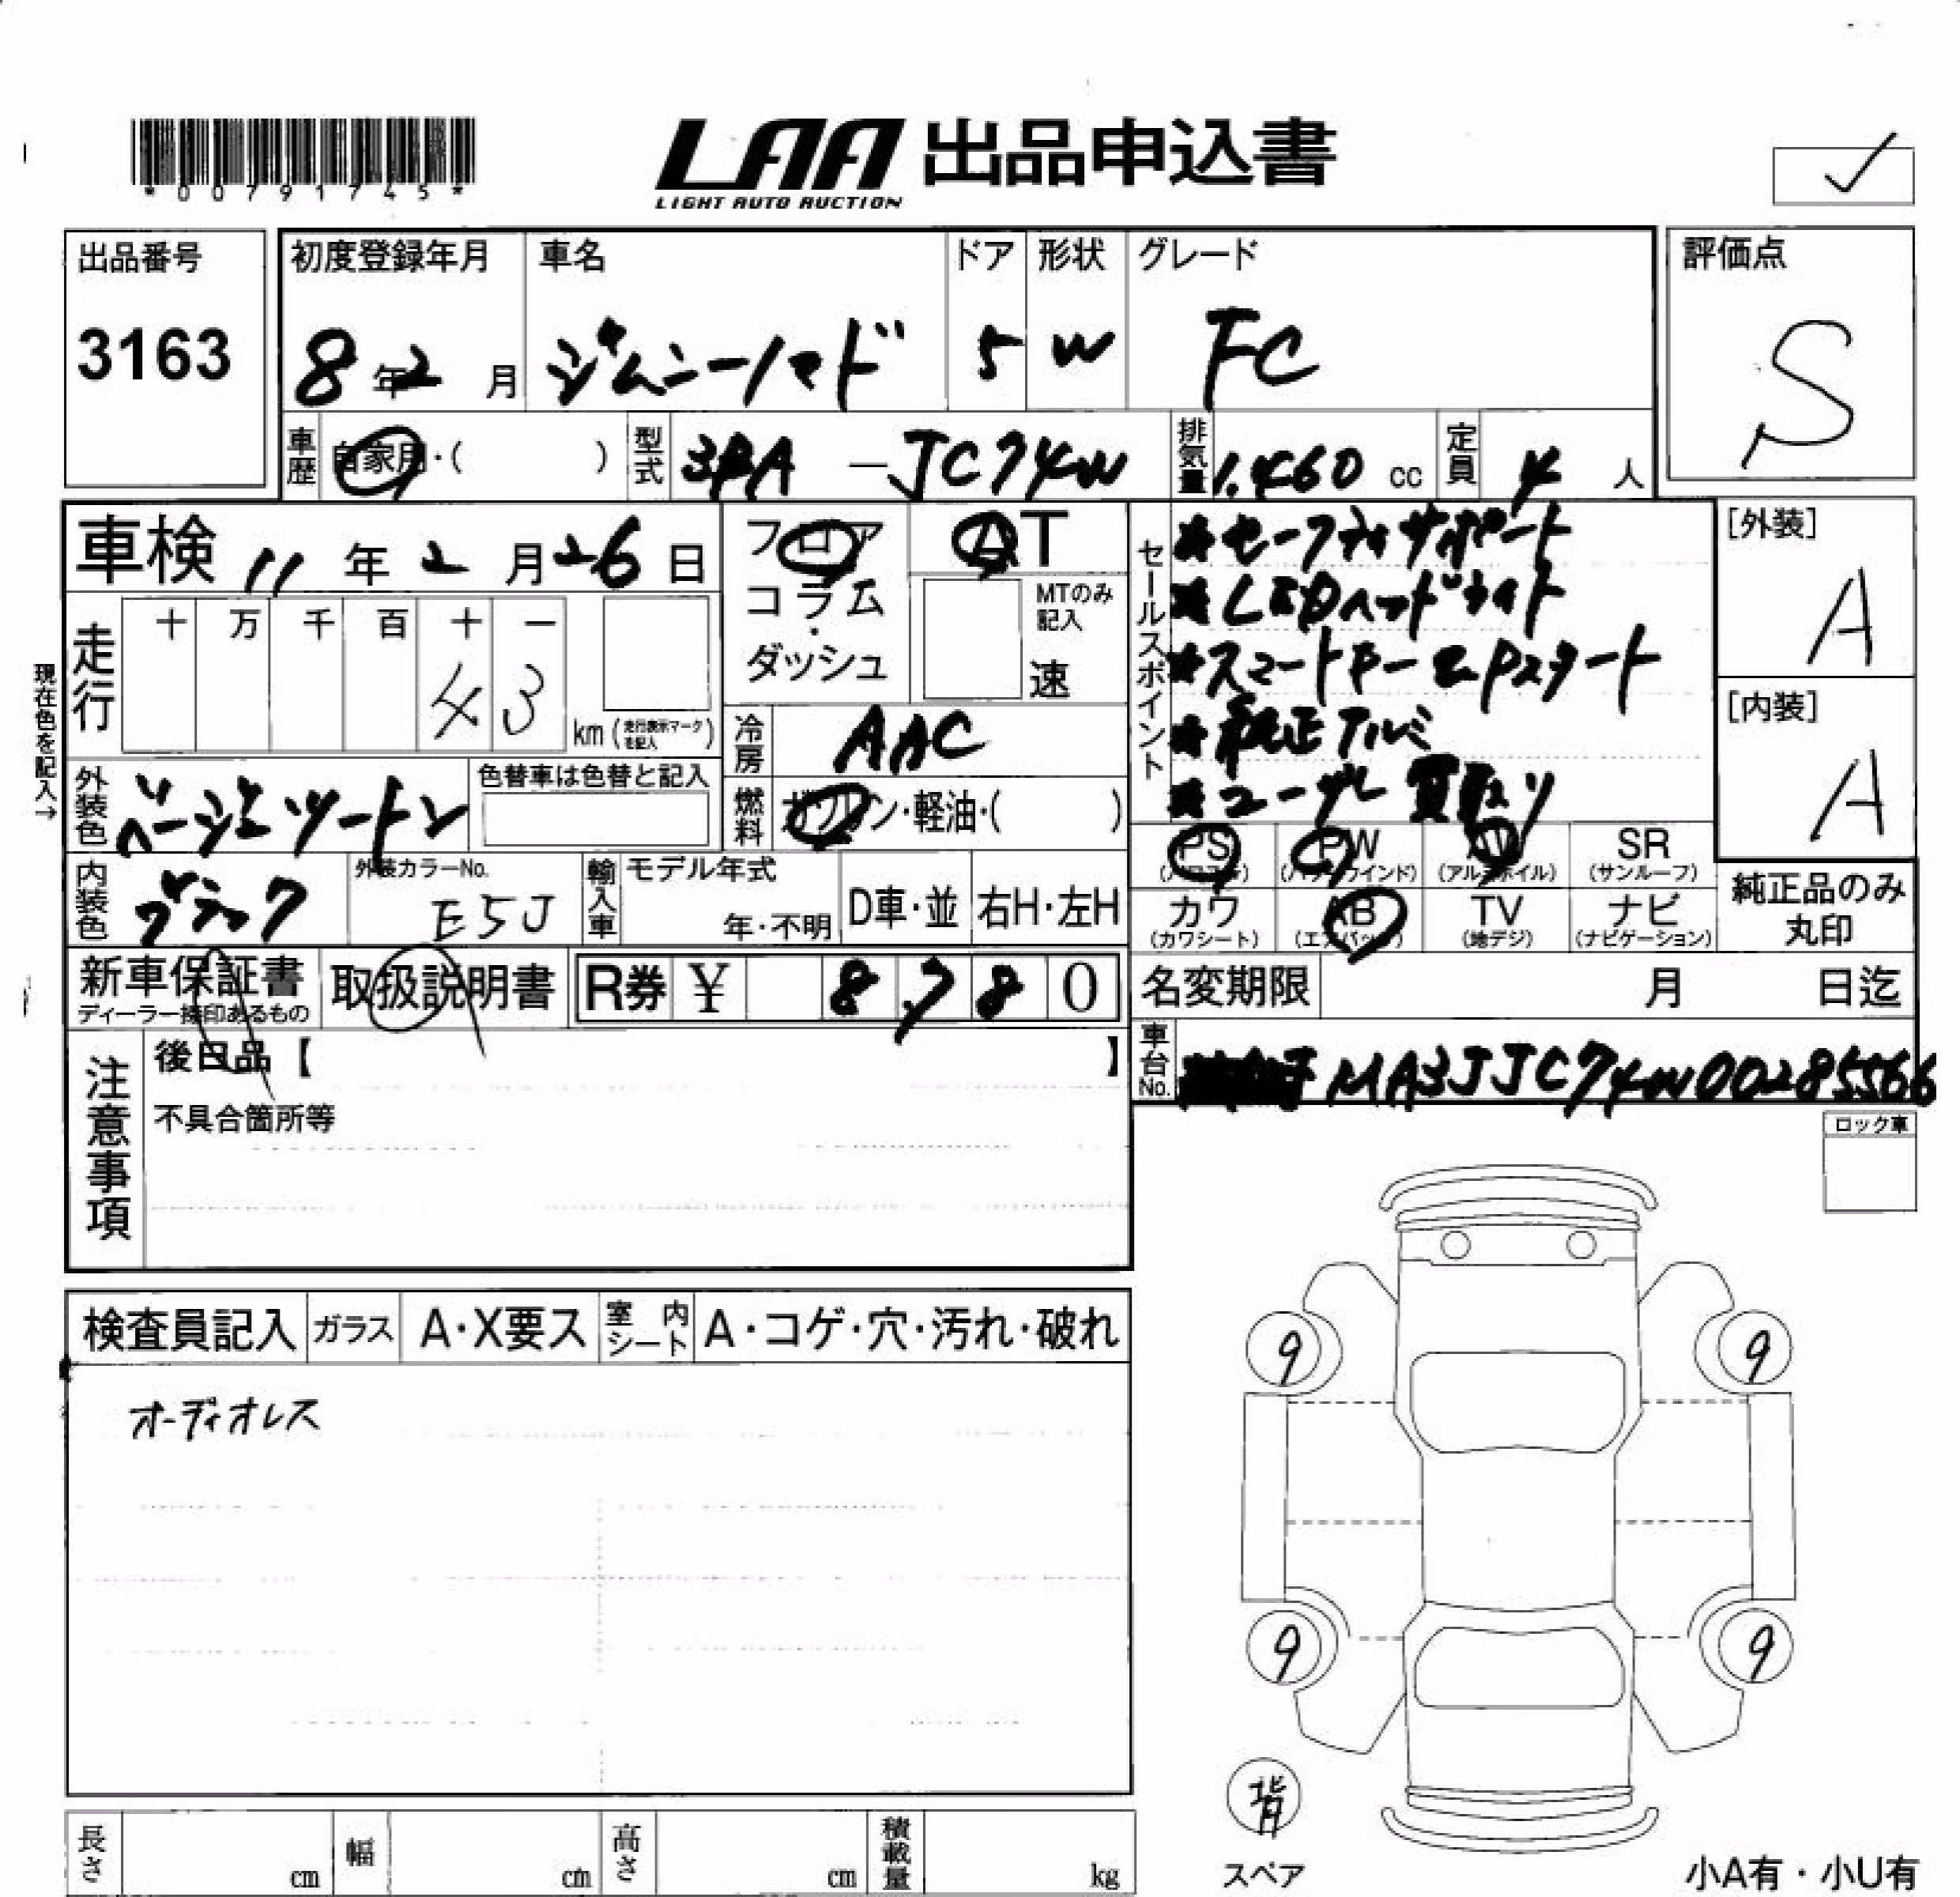 *00791745*
LAA 出品申込書
LIGHT AUTO AUCTION
出品番号
3163
初度登録年月
8年2月
車名
ジムニーノマド
ドア
5
形状
W
グレード
FC
評価点
S
車歴
自家用・( )
型式
3BA-JC74W
排気量
1.460 cc
定員
4 人
車検 11年2月26日
フロア
コラム
・
ダッシュ
AT
MTのみ記入
速
走行
十 万 千 百 十 一
4 3
km (走行表示マークを記入)
現在色を記入→
冷房
AAC
燃料
ガソリン・軽油・( )
外装色
ベージュツートン
色替車は色替と記入
内装色
ブラック
外装カラーNo.
E5J
輸入車
モデル年式
年・不明
D車・並
右H・左H
セールスポイント
★セーフティサポート
★LEDヘッドライト
★スマートキー
★純正アルミ
★ユーザー買取り
[外装]
A
[内装]
A
PS
(パワステ)
PW
(パワーウインド)
AW
(アルミホイル)
SR
(サンルーフ)
カワ
(カワシート)
AB
(エアバック)
TV
(地デジ)
ナビ
(ナビゲーション)
純正品のみ
丸印
新車保証書
ディーラー捺印あるもの
取扱説明書
R券 ¥ 8780
名変期限 月 日迄
車台No.
MA3JJC74W00285566
注意事項
後日品【 】
不具合箇所等
ロック車
検査員記入
ガラス
A・X要ス
室内シート
A・コゲ・穴・汚れ・破れ
オーディオレス
9
9
9
9
背
スペア
長さ cm
幅 cm
高さ cm
積載量 kg
小A有・小U有